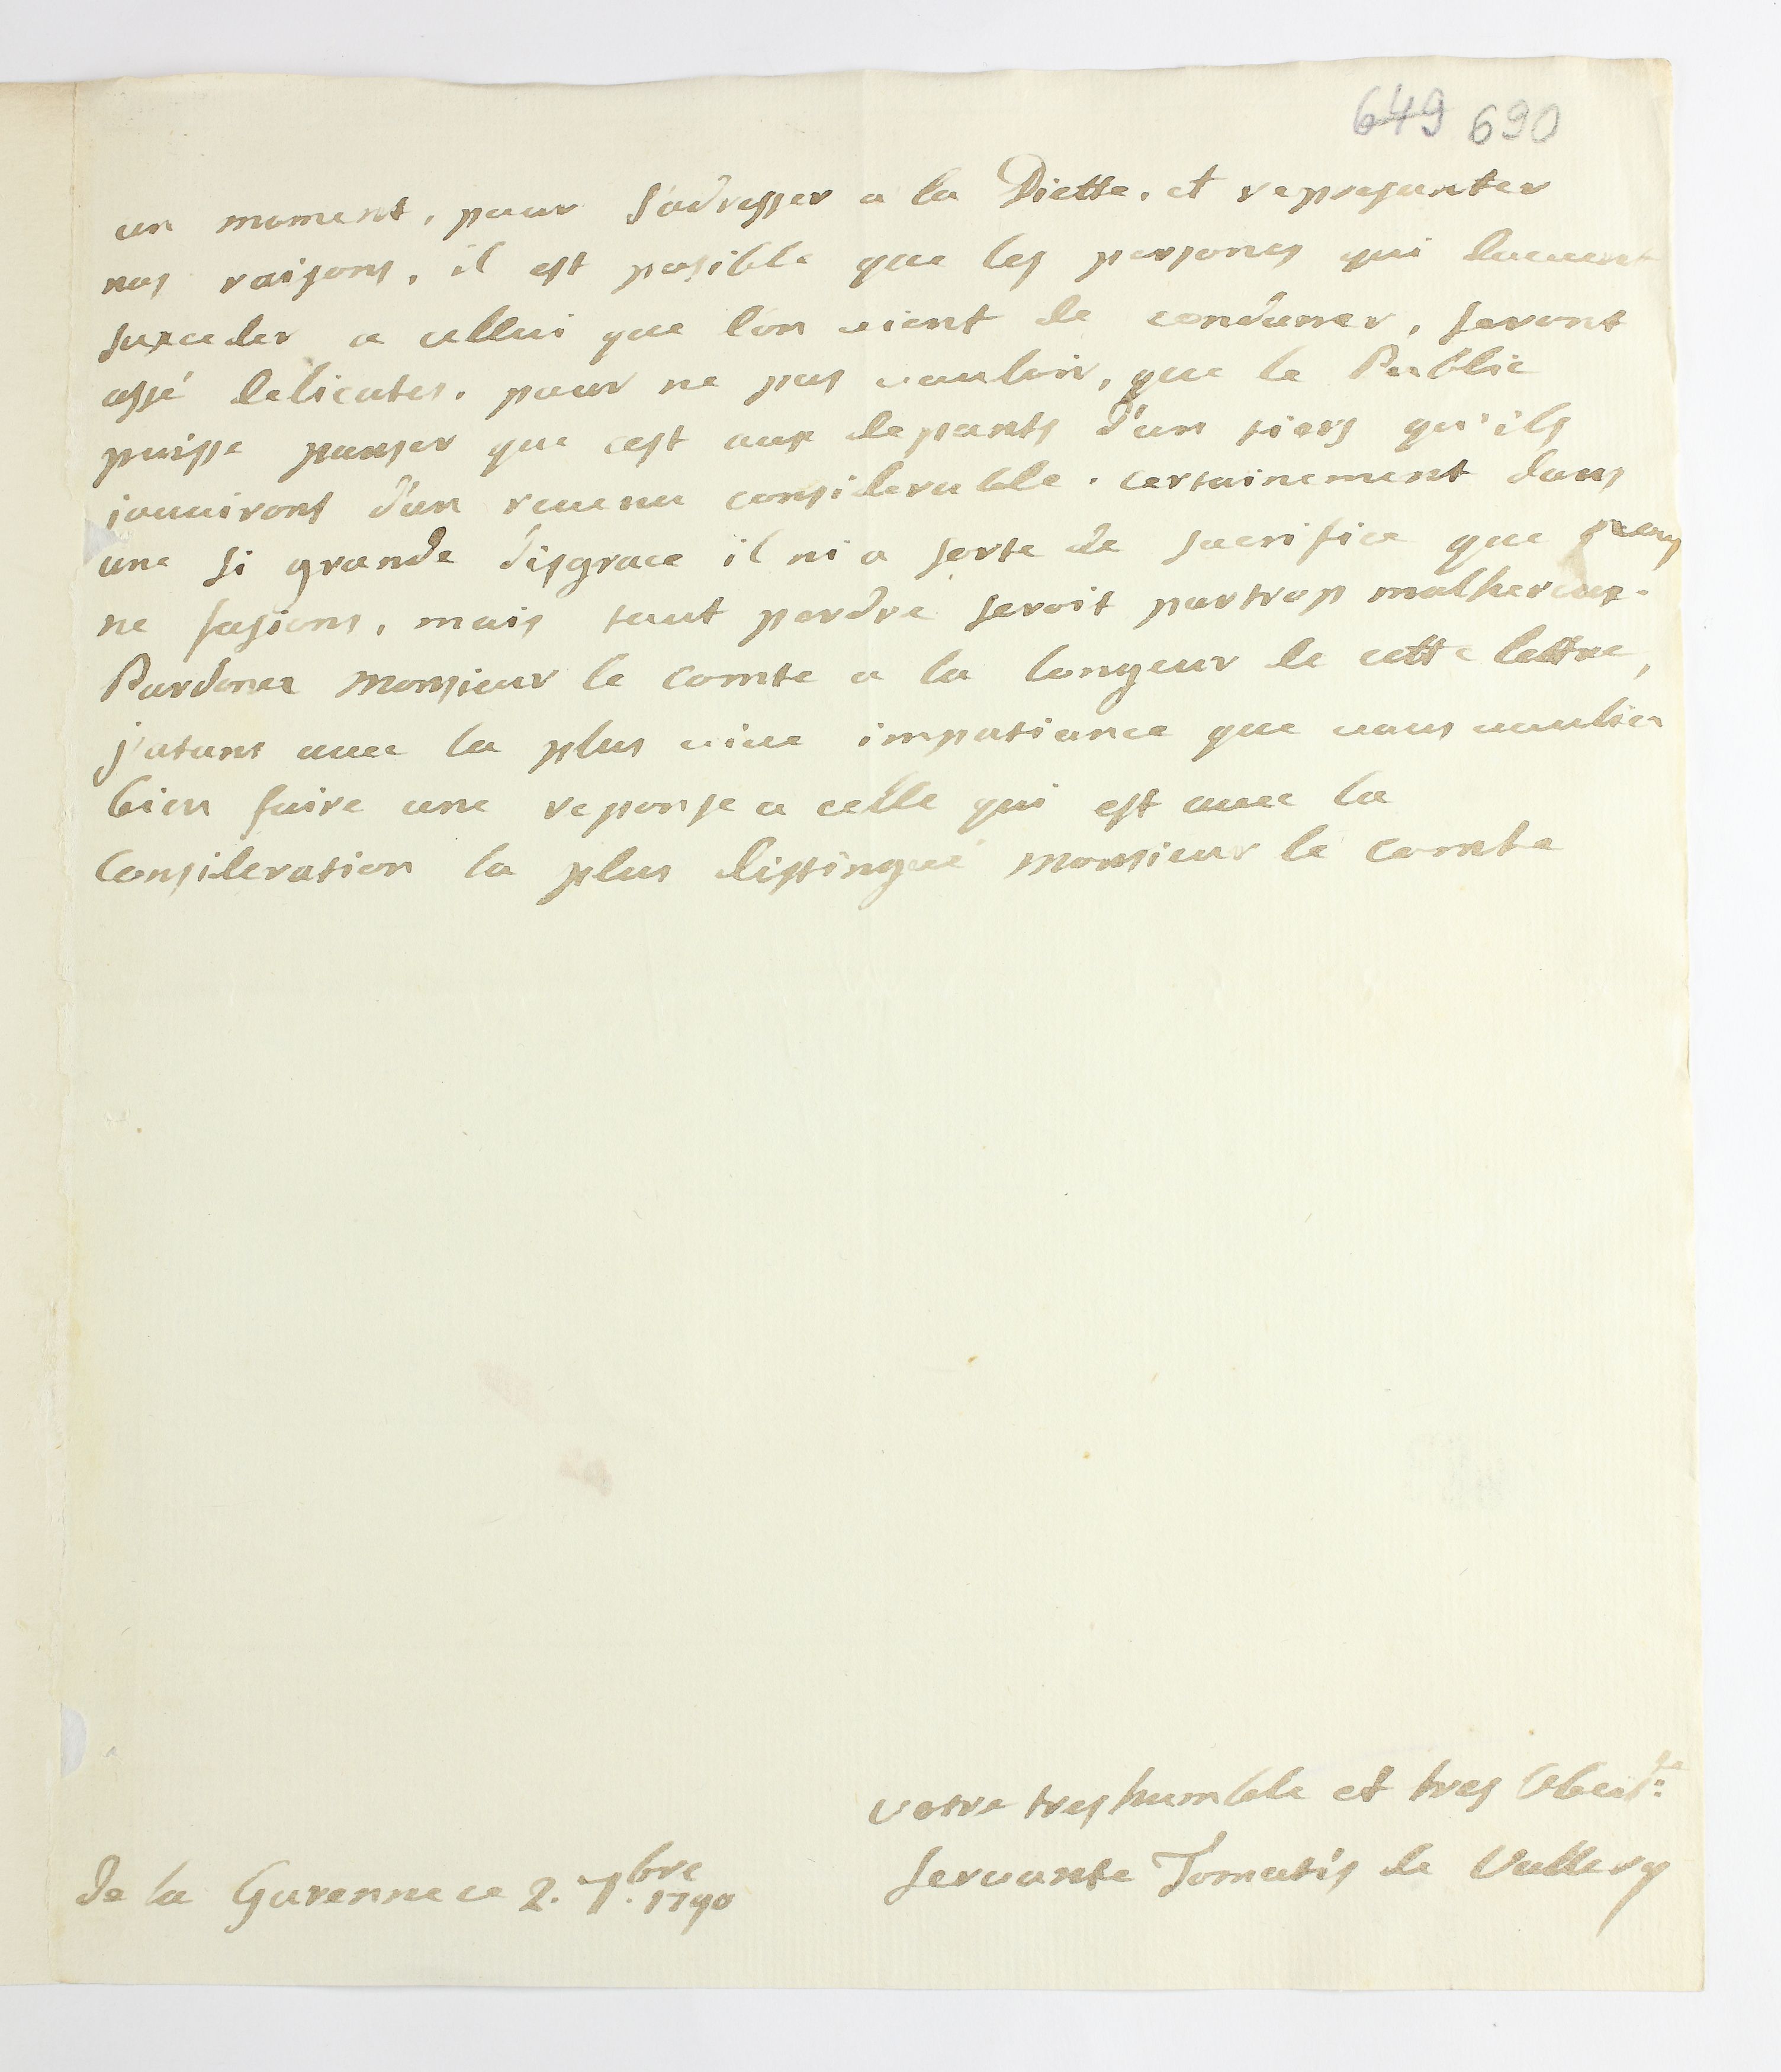 649 690
un moment, pour s'adresser a la Diette. et represanter
nos raisons, il est posible que les persones qui deveront
suxceder a cellui que l'on vient de condaner, seront
assé delicates. pour ne pas vouloir, que le Public
puisse panser que cest aux depants d'un tiers qu'ils
jouuiront d'un revenu considerable. certainement dans
une si grande disgrace il ni a sorte de sacrifice que nous
ne fasions, mais tout perdre seroit partrop malhereux.
Pardoner Monsieur le Comte a la longeur de cette lettre,
j'atans avec la plus vive impatiance que vous voulier
bien faire une reponse a celle qui est avec la
Consideration la plus distingué monsieur le Comte
votre tres humble et tres Obeis.te
servante Tomatis de Vallery
de la Garenne ce 2. 7.bre 1790